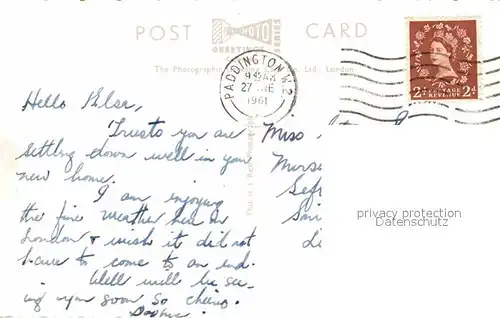 POST CARD
PHOTO
GREETINGS
SERIES
The Photographic Co., Ltd., London
PADDINGTON. W.2
9 45 AM
27 JNE
1961
POSTAGE
REVENUE
2d 2d
Hello
Trusto you are
settling down well in your
new home.
I am enjoying
the fine weather here in
London & wish it did not
have to come to an end.
Well will be see-
ing you soon so cheerio.
Daphne.
Miss
This is a Real Photograph
privacy protection
Datenschutz